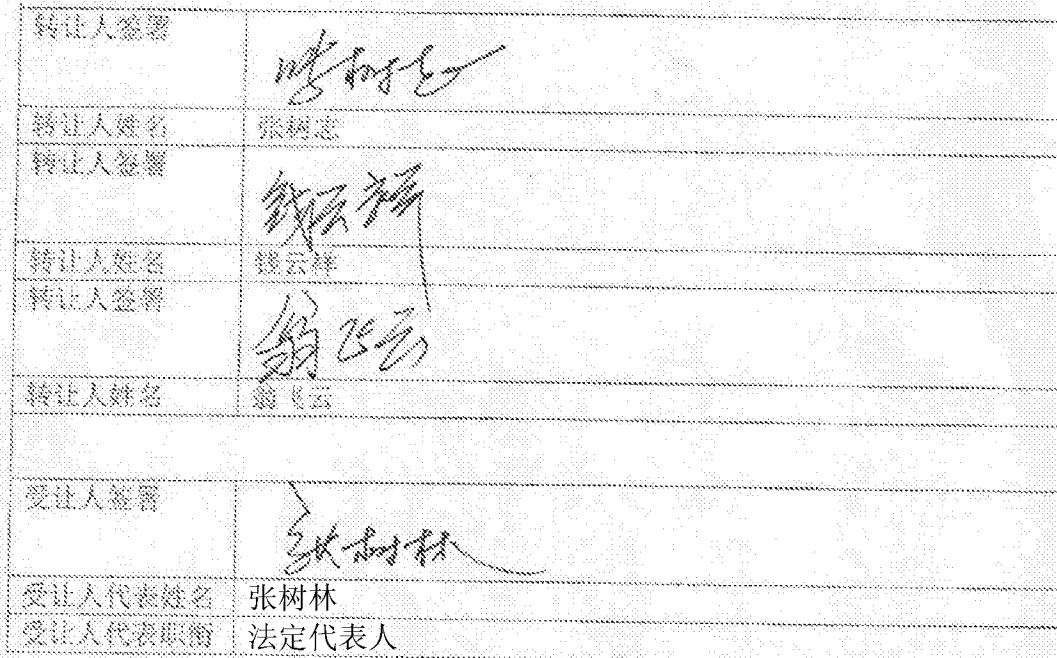 转让人签署
转让人姓名 张树志
转让人签署
钱云祥
转让人姓名 钱云祥
转让人签署
翁飞云
转让人姓名 翁飞云
受让人签署
张树林
受让人代表姓名 张树林
受让人代表职衔 法定代表人